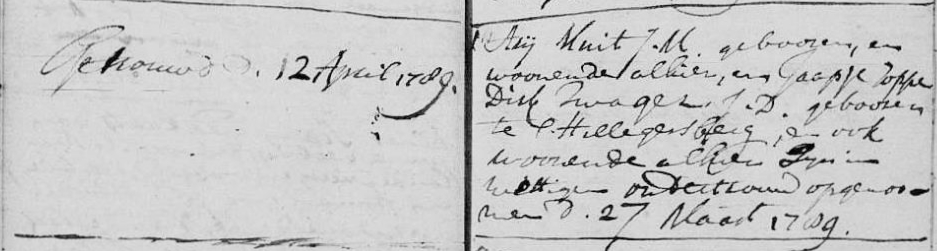 Getrouwd d. 12 April 1789.
Arij Kluit J.M. gebooren, en
woonende alhier, en Jaapje Joppe
Dirk Zwager. J.D. gebooren
te S. Hillegersberg, en ook
woonende alhier Zijn in
wettigen ondertrouw opgenoo-
men d. 27 Maart 1789.